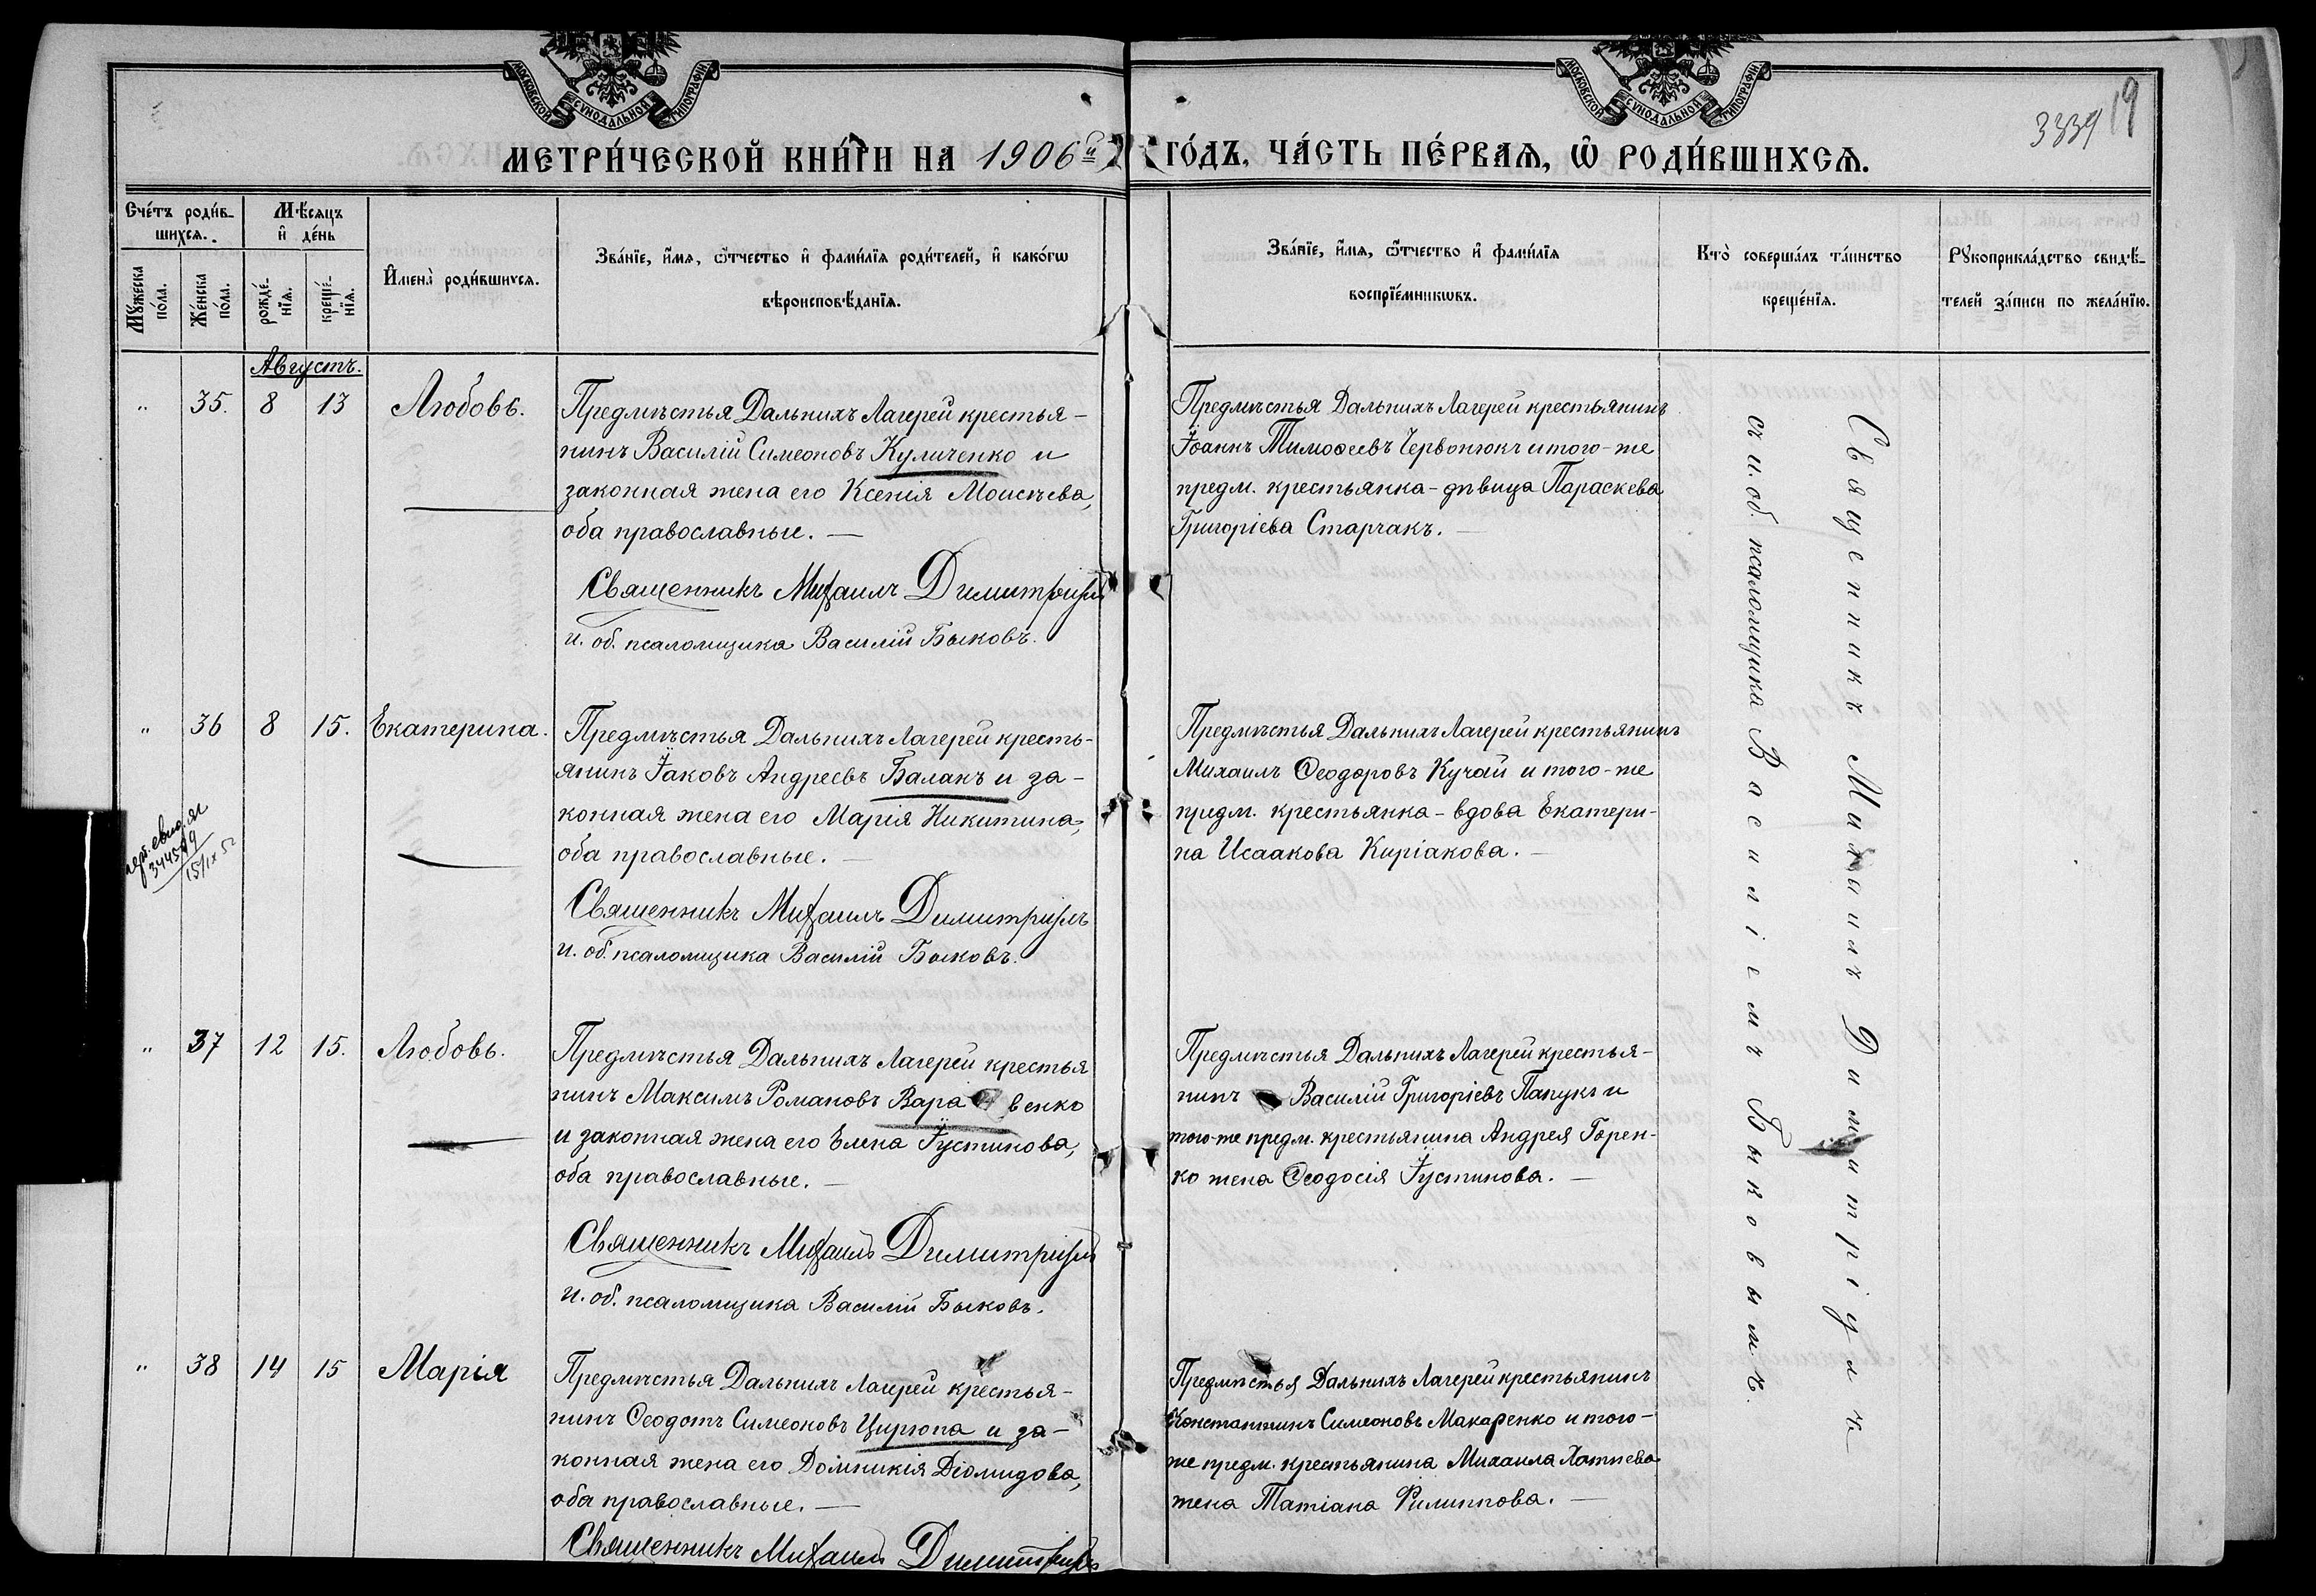 МОСКОВСКОЙ СѴНОДАЛЬНОЙ ТИПОГРАФІИ.
МОСКОВСКОЙ СѴНОДАЛЬНОЙ ТИПОГРАФІИ.
3339 19
МЕТРИ́ЧЕСКОЙ КНИ́ГИ НА 1906й ГО́ДЪ, ЧА́СТЬ ПЕ́РВАѦ, Ѡ҆ РОДИ́ВШИХСѦ.
Сче́тъ роди́в-
шихсѧ.
Мѣ́сѧцъ
и҆ де́нь
Мꙋ́жеска
по́ла.
Же́нска
по́ла.
рожде́-
нїѧ.
креще́-
нїѧ.
И҆мена̀ роди́вшихсѧ.
Зва́нїе, и҆́мѧ, ѻ҆́тчество и҆ фами́лїѧ роди́телей, и҆ како́гѡ
вѣроисповѣ́данїѧ.
Зва́нїе, и҆́мѧ, ѻ҆́тчество и҆ фами́лїѧ
воспрїе́мникѡвъ.
Кто̀ соверша́лъ та́инство
креще́нїѧ.
Рꙋкоприкла́дство свидѣ́-
телей за́писи по жела́нїю.
Августъ.
" 35. 8 13 Любовь.
Предмѣстья Дальнихъ Лагерей крестья-
нинъ Василій Симеоновъ Куличенко и
законная жена его Ксенія Моисѣева,
оба православные. —
Священникъ Михаилъ Димитріукъ
и. об. псаломщика Василій Быковъ.
Предмѣстья Дальнихъ Лагерей крестьянинъ
Іоаннъ Тимоѳеевъ Червонюкъ и того-же
предм. крестьянка-дѣвица Параскева
Григоріева Старчакъ. —
" 36 8 15. Екатерина.
Предмѣстья Дальнихъ Лагерей кресть-
янинъ Іаковъ Андреевъ Балакъ и за-
конная жена его Марія Никитина,
оба православные. —
Священникъ Михаилъ Димитріукъ
и. об. псаломщика Василій Быковъ.
344599
15/IX 52
Предмѣстья Дальнихъ Лагерей крестьянинъ
Михаилъ Ѳеодоровъ Кучай и того-же
предм. крестьянка-вдова Екатери-
на Исаакова Киріакова. —
" 37 12 15. Любовь.
Предмѣстья Дальнихъ Лагерей крестья
нинъ Максимъ Романовъ Вара венко
и законная жена его Елена Іустинова,
оба православные. —
Священникъ Михаилъ Димитріукъ
и. об. псаломщика Василій Быковъ.
Предмѣстья Дальнихъ Лагерей крестья-
нинъ Василій Григоріевъ Папукъ и
того-же предм. крестьянина Андрея Горен-
ко жена Ѳеодосія Іустинова. —
" 38 14 15 Марія
Предмѣстья Дальнихъ Лагерей крестья-
нинъ Ѳеодотъ Симеоновъ Цирюпа и за-
конная жена его Домникія Діомидова,
оба православные. —
Священникъ Михаилъ Димитріукъ
Предмѣстья Дальнихъ Лагерей крестьянинъ
Константинъ Симеоновъ Макаренко и того-
же предм. крестьянина Михаила Хотнева
жена Татіана Филиппова. —
Священникъ Михаилъ Димитріукъ
съ и. об. псаломщика Василіемъ Быковымъ.